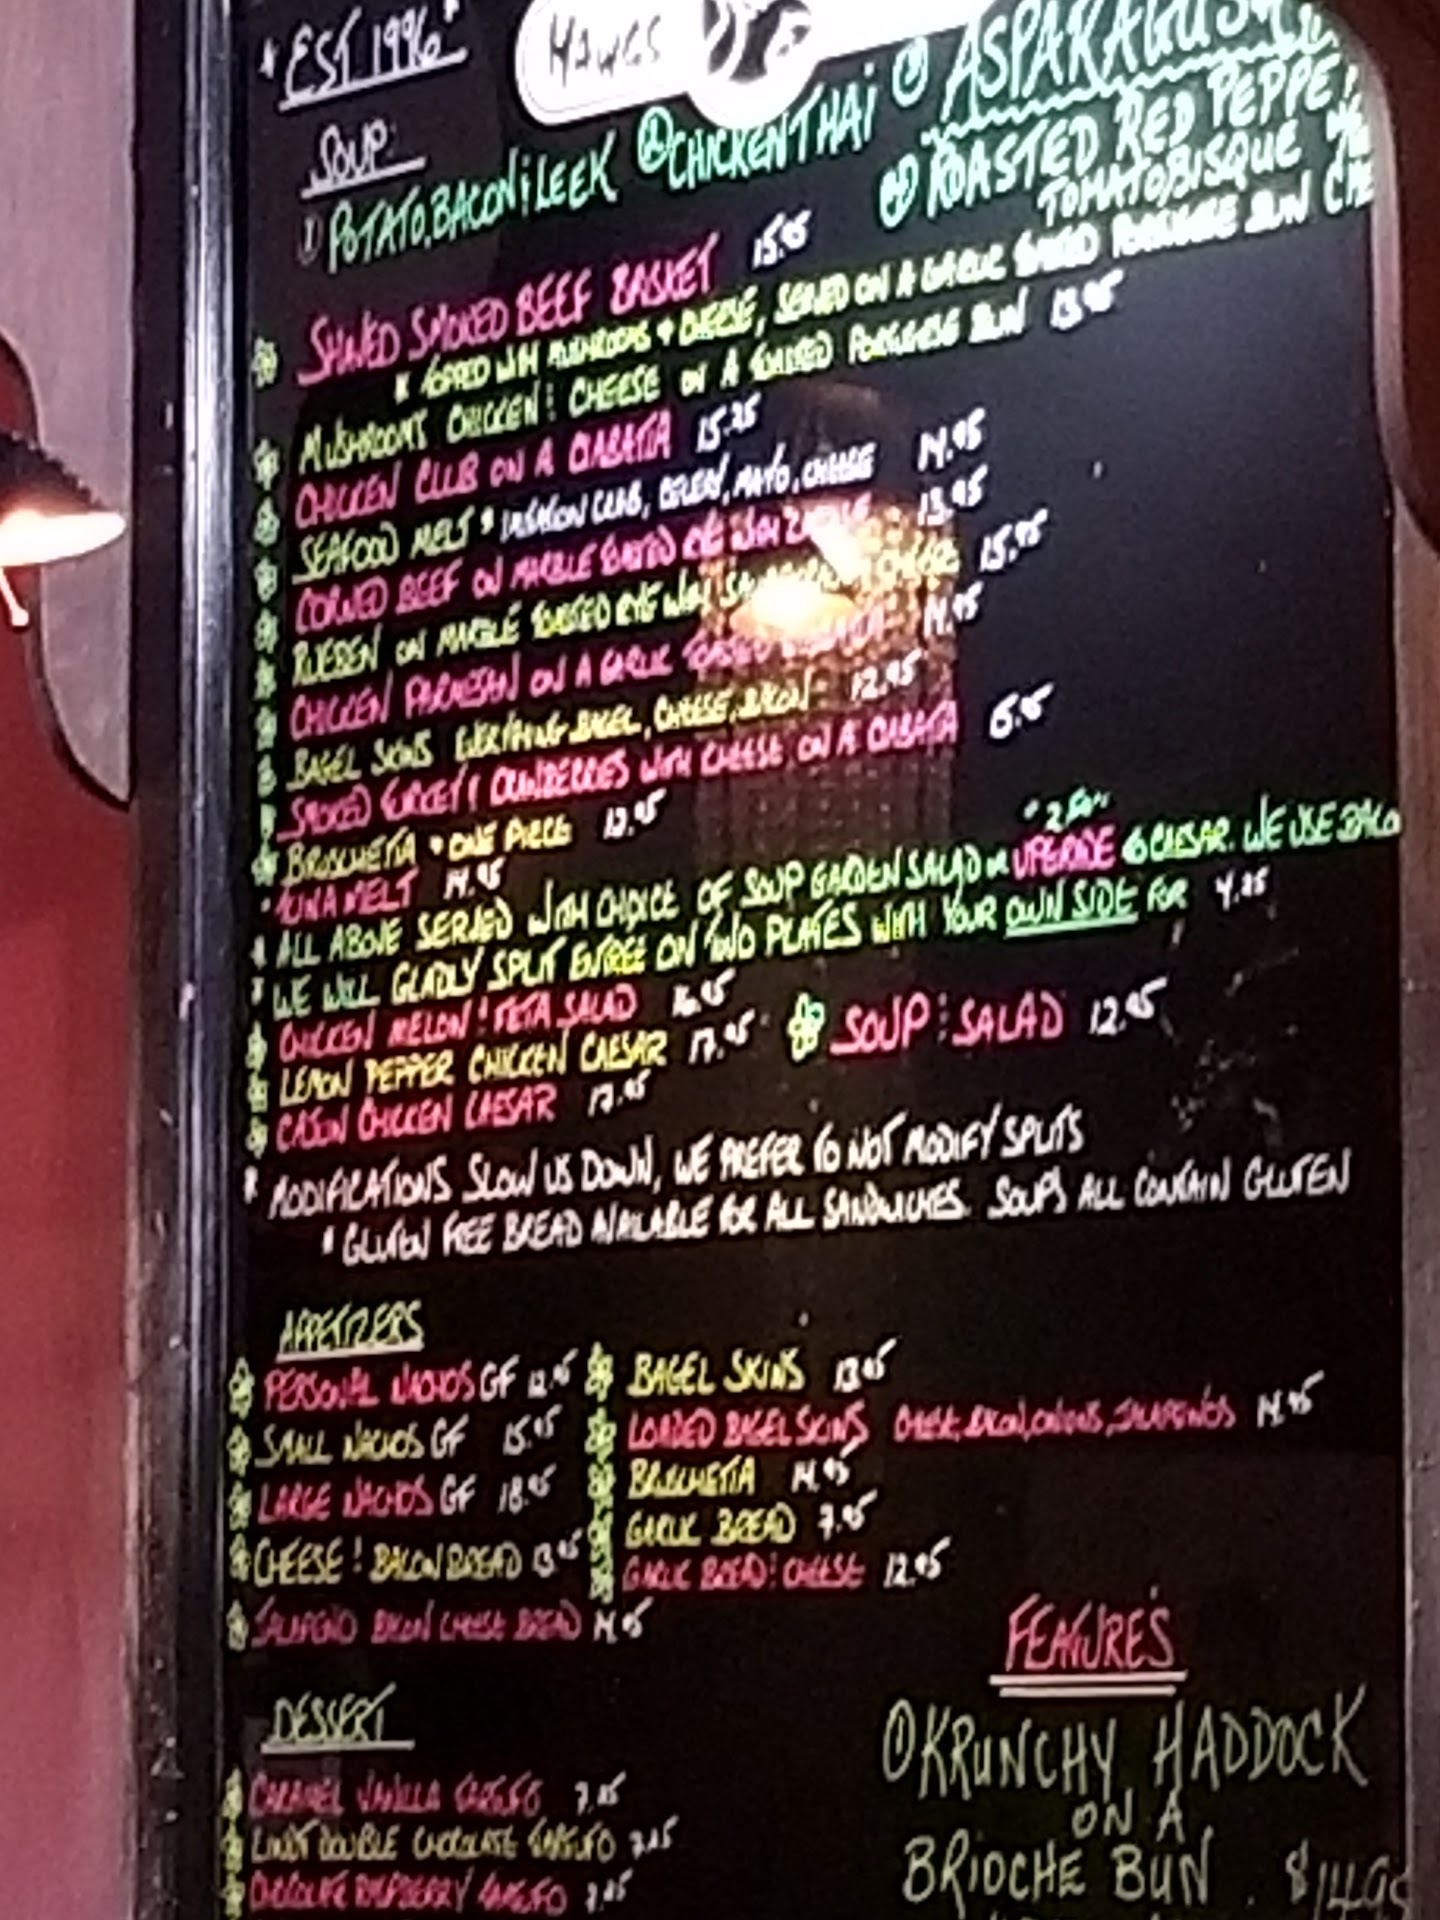 * EST. 1996 *
HAWGS
SOUP:
① POTATO, BACON & LEEK ② CHICKEN THAI ③ ASPARAGUS
④ ROASTED RED PEPPE
TOMATO BISQUE
SHAVED SMOKED BEEF BASKET 15.95
* TOPPED WITH MUSHROOMS + CHEESE, SERVED ON A GARLIC TOASTED PORTUGUESE BUN
MUSHROOM CHICKEN & CHEESE ON A TOASTED PORTUGUESE BUN 13.95
CHICKEN CLUB ON A CIABATTA 15.25
SEAFOOD MELT * IMITATION CRAB, CELERY, MAYO, CHEESE 14.95
CORNED BEEF ON MARBLE TOASTED RYE WITH 13.95
RUEBEN ON MARBLE TOASTED RYE WITH CHEESE 15.95
CHICKEN PARMESAN ON A GARLIC TOASTED 14.95
BAGEL SKINS EVERYTHING BAGEL, CHEESE, BACON 12.95
SMOKED TURKEY & CRANBERRIES WITH CHEESE, ON A CIABATTA
BRUSCHETTA * ONE PIECE 12.95
TUNA MELT 14.95
"2.50"
* ALL ABOVE SERVED WITH CHOICE OF SOUP GARDEN SALAD OR UPGRADE TO CAESAR. WE USE BACO
* WE WILL GLADLY SPLIT ENTREE ON TWO PLATES WITH YOUR OWN SIDE FOR 4.25
CHICKEN MELON & FETA SALAD 16.95
LEMON PEPPER CHICKEN CAESAR 17.95 SOUP & SALAD 12.95
CAJUN CHICKEN CAESAR 17.95
* MODIFICATIONS SLOW US DOWN, WE PREFER TO NOT MODIFY SPLITS
* GLUTEN FREE BREAD AVAILABLE FOR ALL SANDWICHES. SOUPS ALL CONTAIN GLUTEN
APPETIZERS
PERSONAL NACHOS GF 12.95 BAGEL SKINS 13.95
SMALL NACHOS GF 15.95 LOADED BAGEL SKINS CHEESE, BACON, ONIONS, JALAPENOS 14.95
LARGE NACHOS GF 18.95 BRUSCHETTA 14.95
GARLIC BREAD 7.95
CHEESE & BACON BREAD 13.95 GARLIC BREAD & CHEESE 12.95
JALAPENO BACON CHEESE BREAD 14.95
FEATURE'S
DESSERT
① KRUNCHY HADDOCK
ON A
BRIOCHE BUN $14.95
CARAMEL VANILLA TARTUFO 7.25
LINDT DOUBLE CHOCOLATE TARTUFO 7.25
CHOCOLATE RASPBERRY TARTUFO 7.25